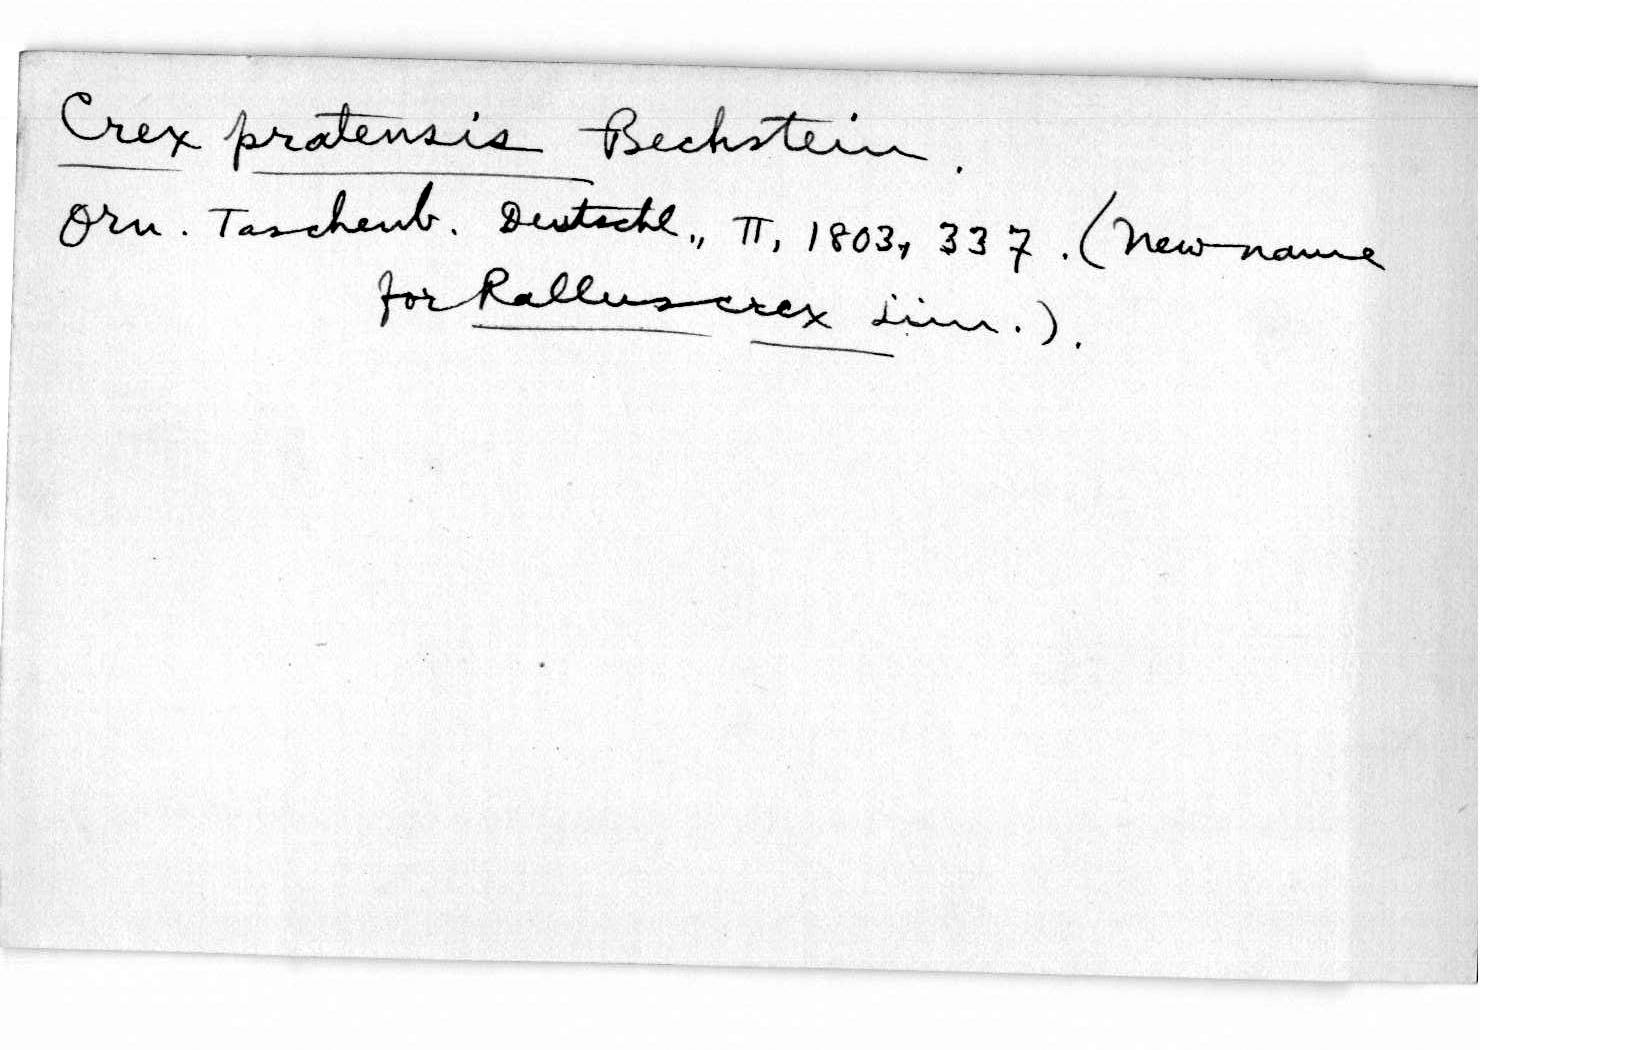 Crex pratensis Bechstein.
Orn. Taschenb. Deutschl., II, 1803, 337. (New name
for Rallus crex Linn.).